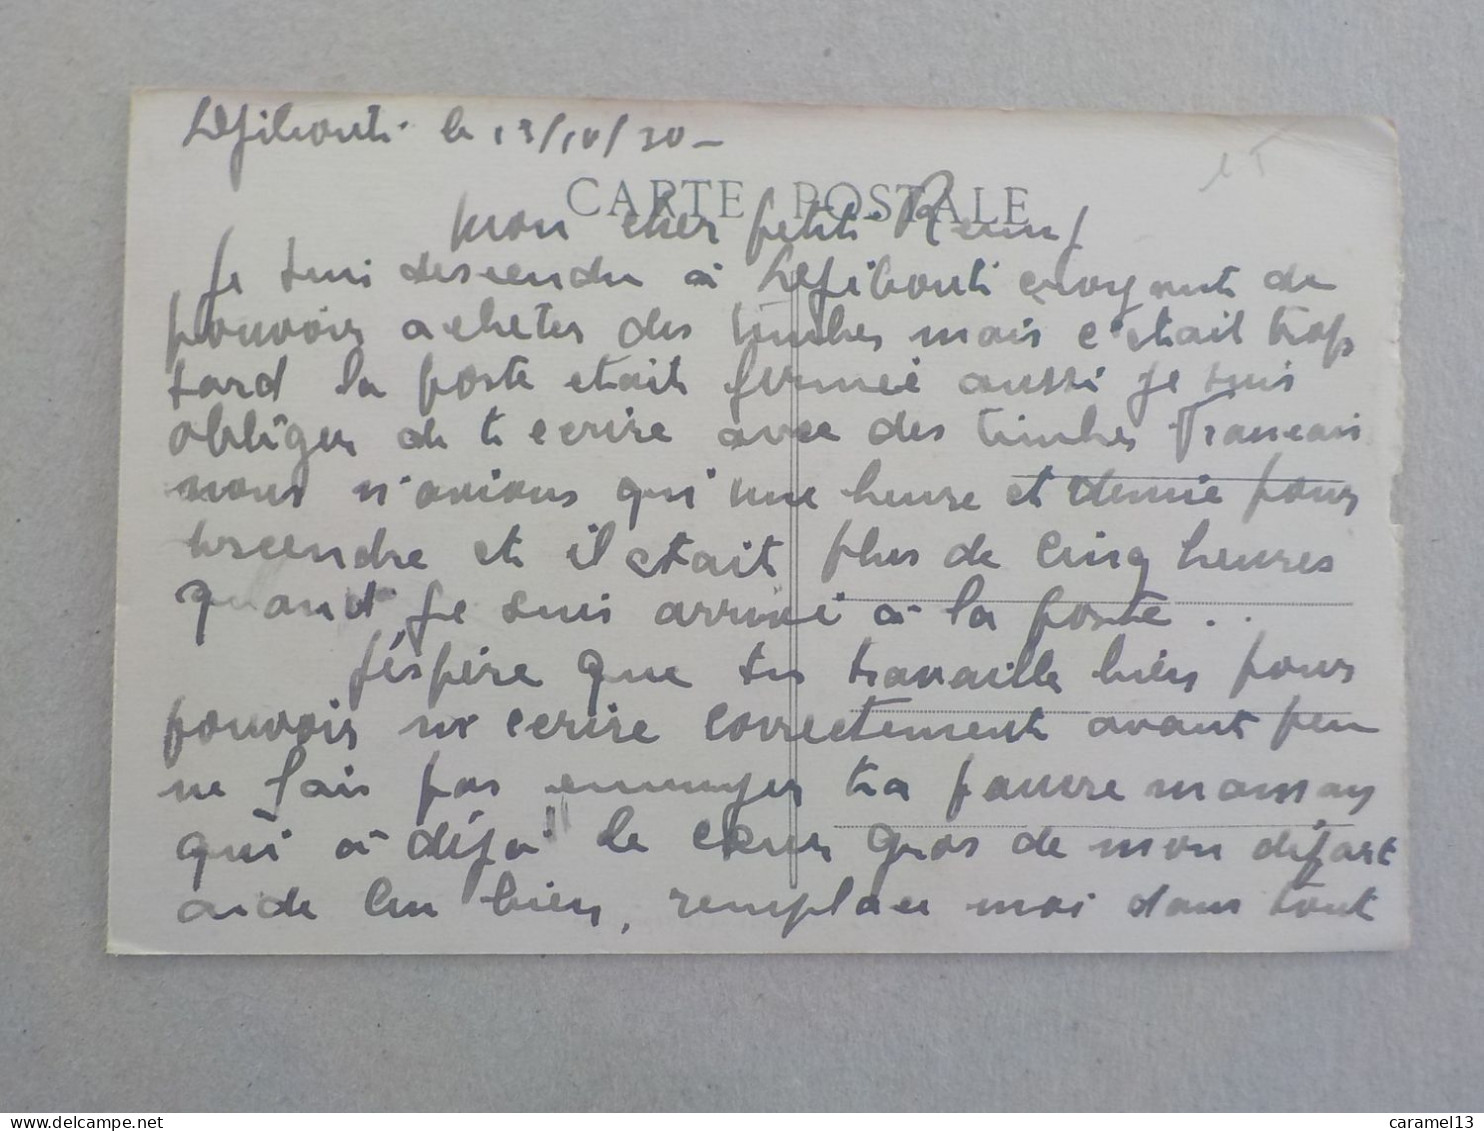 Djibouti le 13/10/30 -
CARTE POSTALE
Mon cher petit Rémy
Je suis descendu à Djibouti croyant de
pouvoir acheter des timbres mais c'était trop
tard la poste etait fermée aussi je suis
obliger de t ecrire avec des timbres Francais
nous n'avions qu'une heure et demie pour
descendre et il etait plus de cinq heures
quand je suis arrivé à la poste ..
J'éspère que tu travaille bien pour
pouvoir m'ecrire correctement avant peu
ne fais pas ennuyer ta pauvre maman
qui à déjà le cœur gros de mon départ
aide la bien, remplace moi dans tout
caramel13